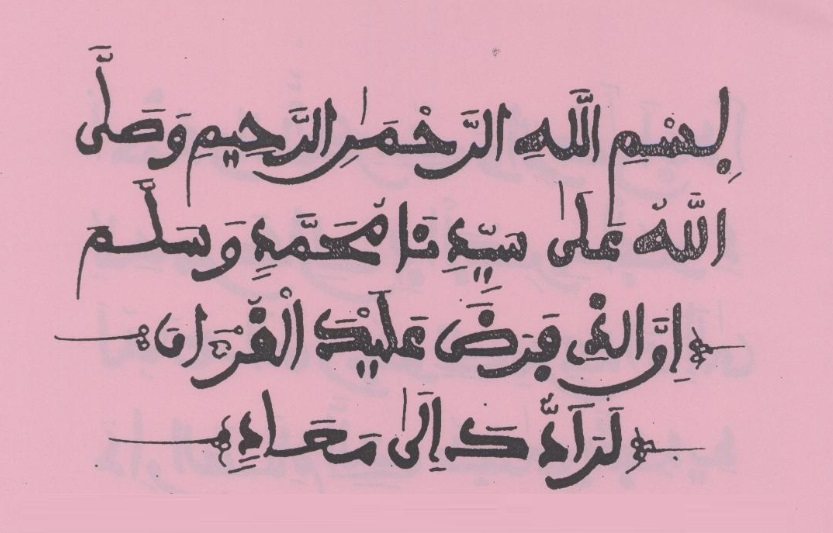 بِسْمِ اللَّهِ الرَّحْمَٰنِ الرَّحِيمِ وَصَلَّى
اللَّهُ عَلَىٰ سَيِّدِنَا مُحَمَّدٍ وَسَلَّمَ
إِنَّ الذِى فَرَضَ عَلَيْكَ الْقُرْءَانَ
لَرَآدُّكَ إِلَىٰ مَعَادٍ